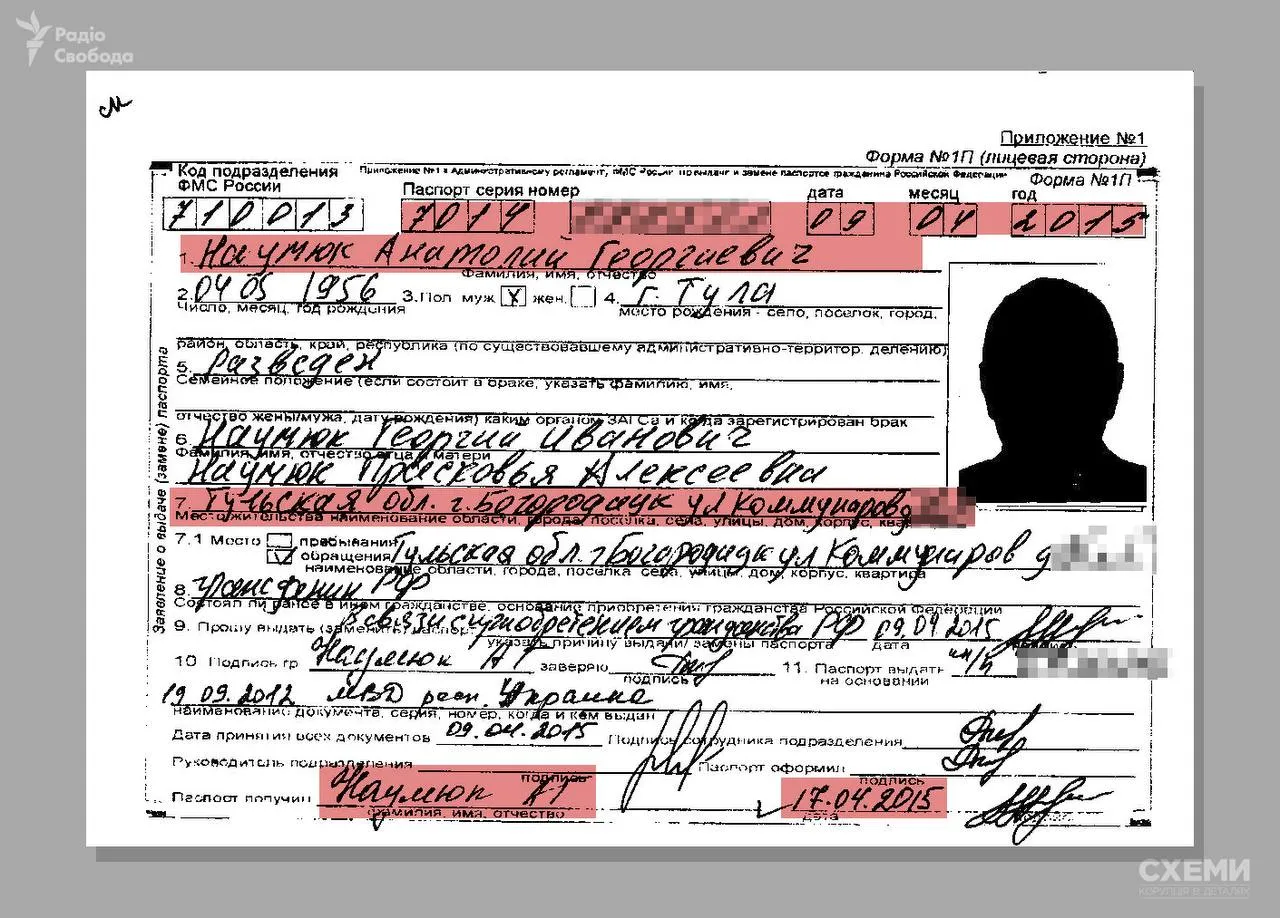 Радіо
Свобода
Приложение №1
Форма №1П (лицевая сторона)
Код подразделения
ФМС России
Приложение №1 к Административному регламенту, ФМС России по выдаче и замене паспортов гражданина Российской Федерации
Форма №1П
Паспорт серия номер дата месяц год
710013 7014 09 04 2015
1. Наумюк Анатолий Георгиевич
Фамилия, имя, отчество
2. 04 05 1956 3.Пол муж. X жен. 4. г. Тула
Число, месяц, год рождения место рождения - село, поселок, город,
район, область, край, республика (по существовавшему административно-территор. делению)
5. Разведен
Семейное положение (если состоит в браке, указать фамилию, имя,
отчество жены/мужа, дату рождения) каким органом ЗАГСа и когда зарегистрирован брак
6. Наумюк Георгий Иванович
Фамилия, имя, отчество отца и матери
Наумюк Прасковья Алексеевна
7. Тульская обл. г.Богородицк ул Коммунаров д
Место жительства наименование области, города, поселка, села, улицы, дом, корпус, квартира
7.1 Место пребывания
обращения Тульская обл. г Богородицк ул Коммунаров д
наименование области, города, поселка села, улицы, дом, корпус, квартира
8. гражданин РФ
Состоял ли ранее в ином гражданстве, основание приобретения гражданства Российской Федерации
9. Прошу выдать (заменить) паспорт в связи с приобретением гражданства РФ 09.04.2015
указать причину выдачи/ замены паспорта дата
10 Подпись гр Наумюк АГ заверяю 11. Паспорт выдать
подпись на основании
19.09.2012 МВД респ. Украина
наименование документа, серия, номер, когда и кем выдан
Дата принятия всех документов 09.04.2015 Подпись сотрудника подразделения
Руководитель подразделения Паспорт оформил
подпись подпись
Паспорт получил Наумюк АГ 17.04.2015
фамилия, имя, отчество дата
Заявление о выдаче (замене) паспорта
СХЕМИ
КОРУПЦІЯ В ДЕТАЛЯХ